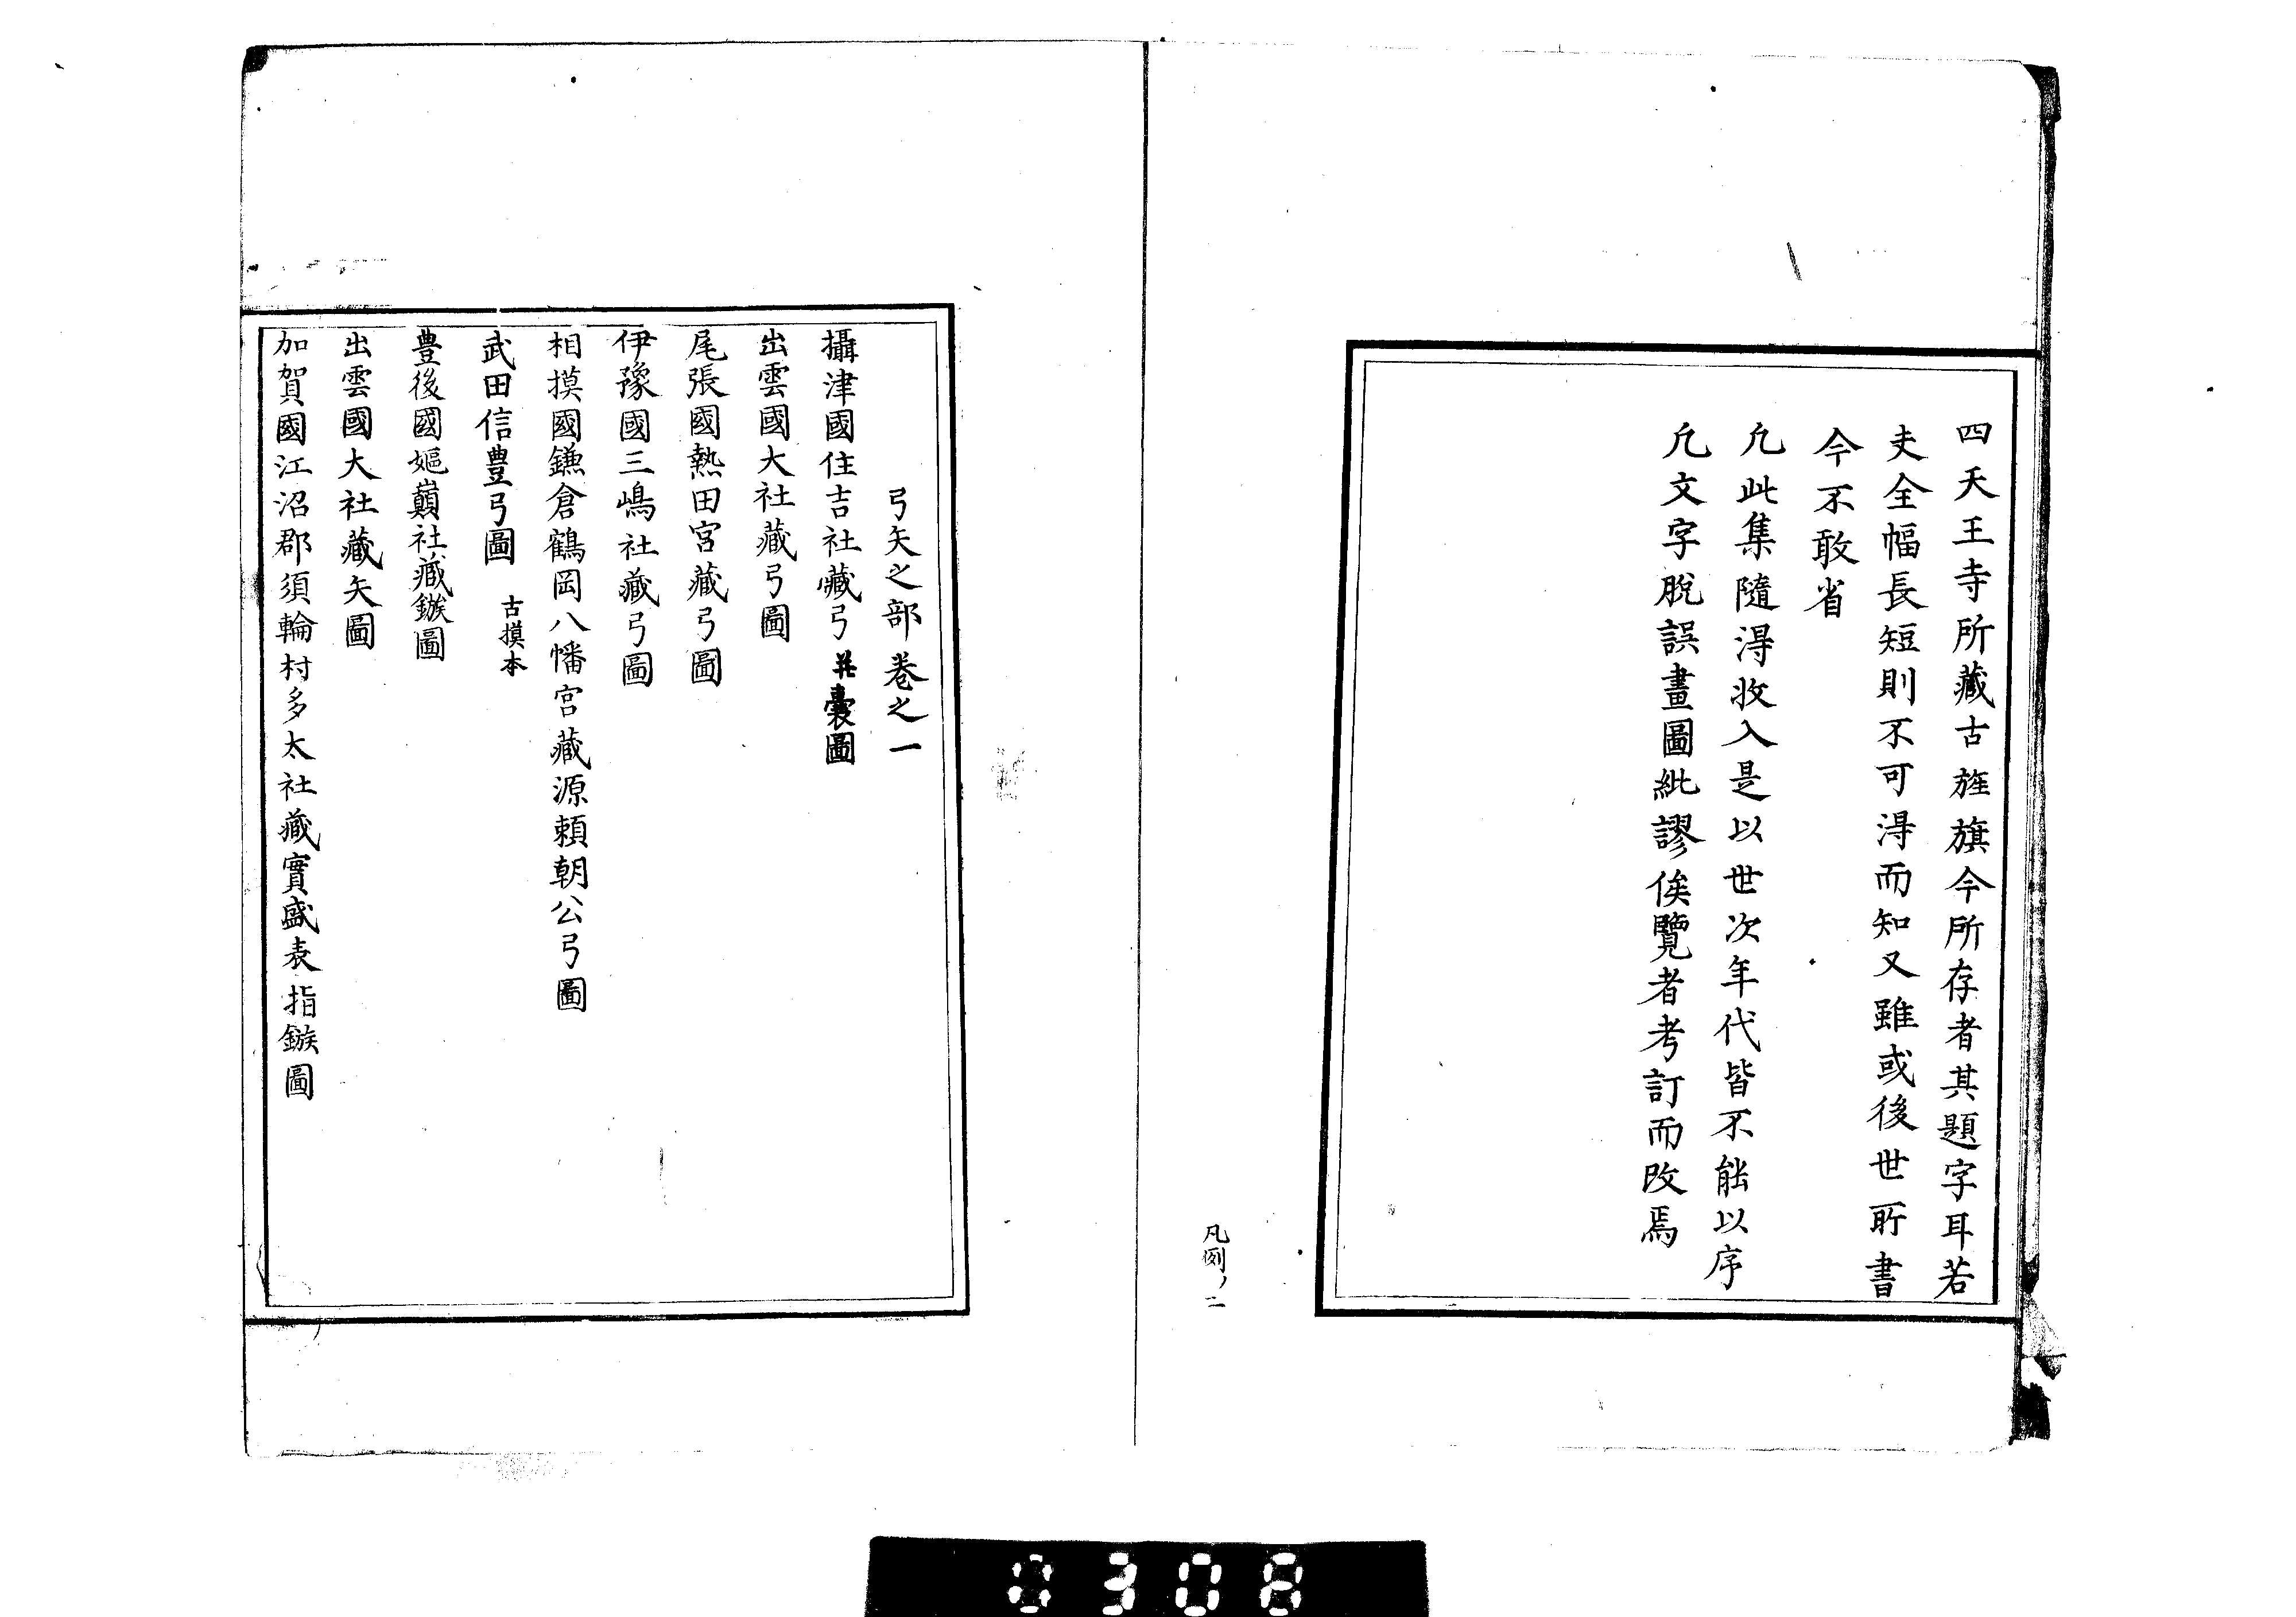 四天王寺所藏古旌旗今所存者其題字耳若
夫全幅長短則不可淂而知又雖或後世所書
今不敢省
凡此集隨淂收入是以世次年代皆不能以序
凡文字脫誤畫圖紕謬俟覽者考訂而改焉
凡例ノ二
弓矢之部 卷之一
攝津國住吉社藏弓 并嚢圖
出雲國大社藏弓圖
尾張國熱田宮藏弓圖
伊豫國三嶋社藏弓圖
相摸國鎌倉鶴岡八幡宮藏源頼朝公弓圖
武田信豊弓圖 古摸本
豊後國嫗巔社藏鏃圖
出雲國大社藏矢圖
加賀國江沼郡須輪村多太社藏實盛表指鏃圖